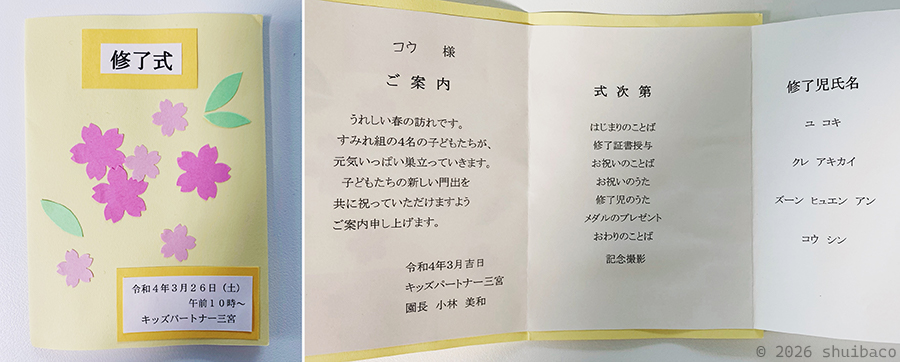 修了式
令和４年３月２６日（土）
午前１０時～
キッズパートナー三宮
コウ 様
ご案内
うれしい春の訪れです。
すみれ組の4名の子どもたちが、
元気いっぱい巣立っていきます。
子どもたちの新しい門出を
共に祝っていただけますよう
ご案内申し上げます。
令和4年3月吉日
キッズパートナー三宮
園長 小林 美和
式次第
はじまりのことば
修了証書授与
お祝いのことば
お祝いのうた
修了児のうた
メダルのプレゼント
おわりのことば
記念撮影
修了児氏名
ユ コキ
クレ アキカイ
ズーン ヒュエン アン
コウ シン
© 2026 shuibaco